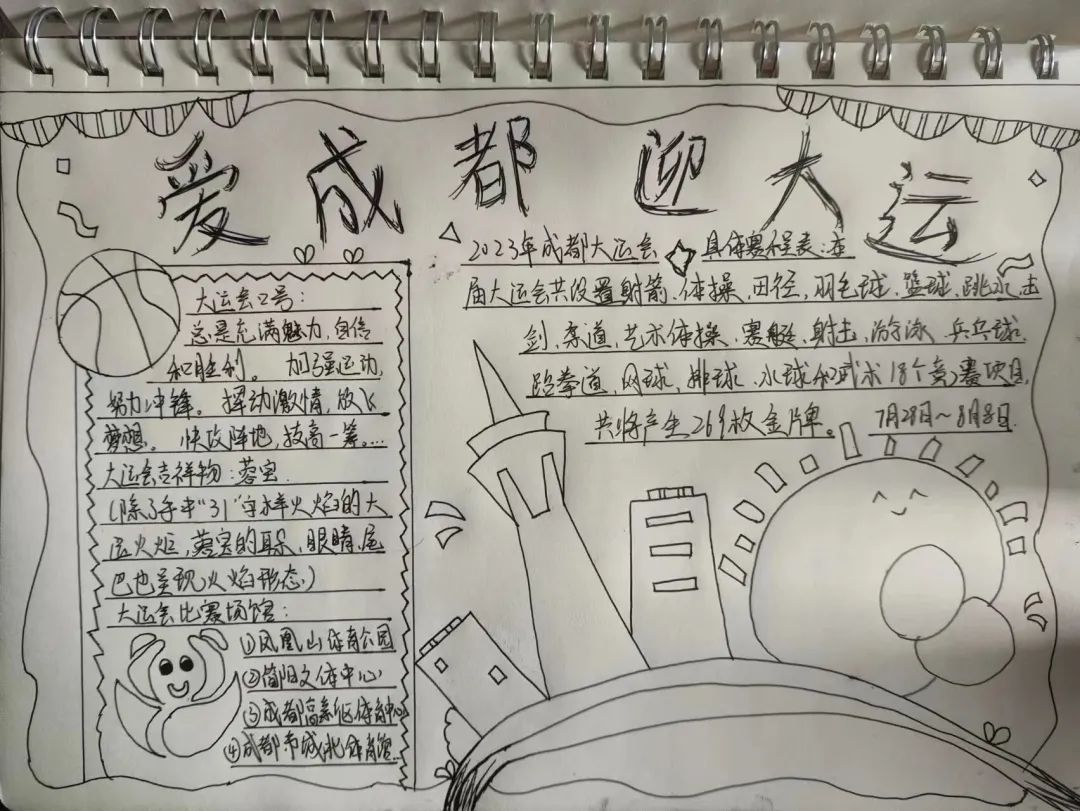 爱成都迎大运
大运会口号：
总是充满魅力，自信
和胜利。 加强运动，
努力冲锋。挥动激情，放飞
梦想。 快攻阵地，技高一筹。...
大运会吉祥物：蓉宝.
(除了手中“31”字样火焰的大
运火炬，蓉宝的耳朵、眼睛、尾
巴也呈现火焰形态)
大运会比赛场馆：
①凤凰山体育公园
②简阳文体中心
③成都高新区体育中心
④成都市城北体育馆...
2023年成都大运会 具体赛程表：本
届大运会共设置射箭、体操、田径、羽毛球、篮球、跳水、击
剑、柔道、艺术体操、赛艇、射击、游泳、乒乓球、
跆拳道、网球、排球、水球和武术18个竞赛项目，
共将产生269枚金牌。 7月28日～8月8日.